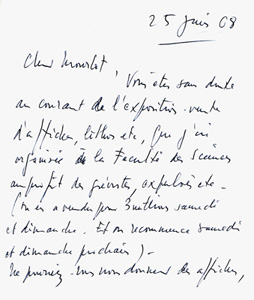 25 juin 68
Cher Mourlot,
Vous êtes sans doute
au courant de l'exposition-vente
d'affiches, lithos etc, que j'ai
organisée à la Faculté des Sciences
au profit des grévistes, expulsés etc -
(on en a vendu pour 3 millions samedi
et dimanche. Et on recommence samedi
et dimanche prochain) -
Ne pourriez-vous nous donner des affiches,